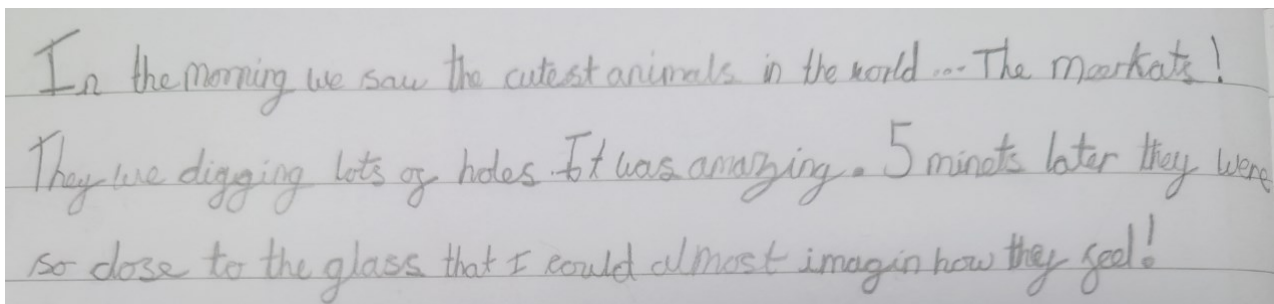 In the morning we saw the cutest animals in the world... The meerkats!
They we digging lots of holes. It was amazing. 5 minets later they were
so close to the glass that I could almost imagin how they feel!